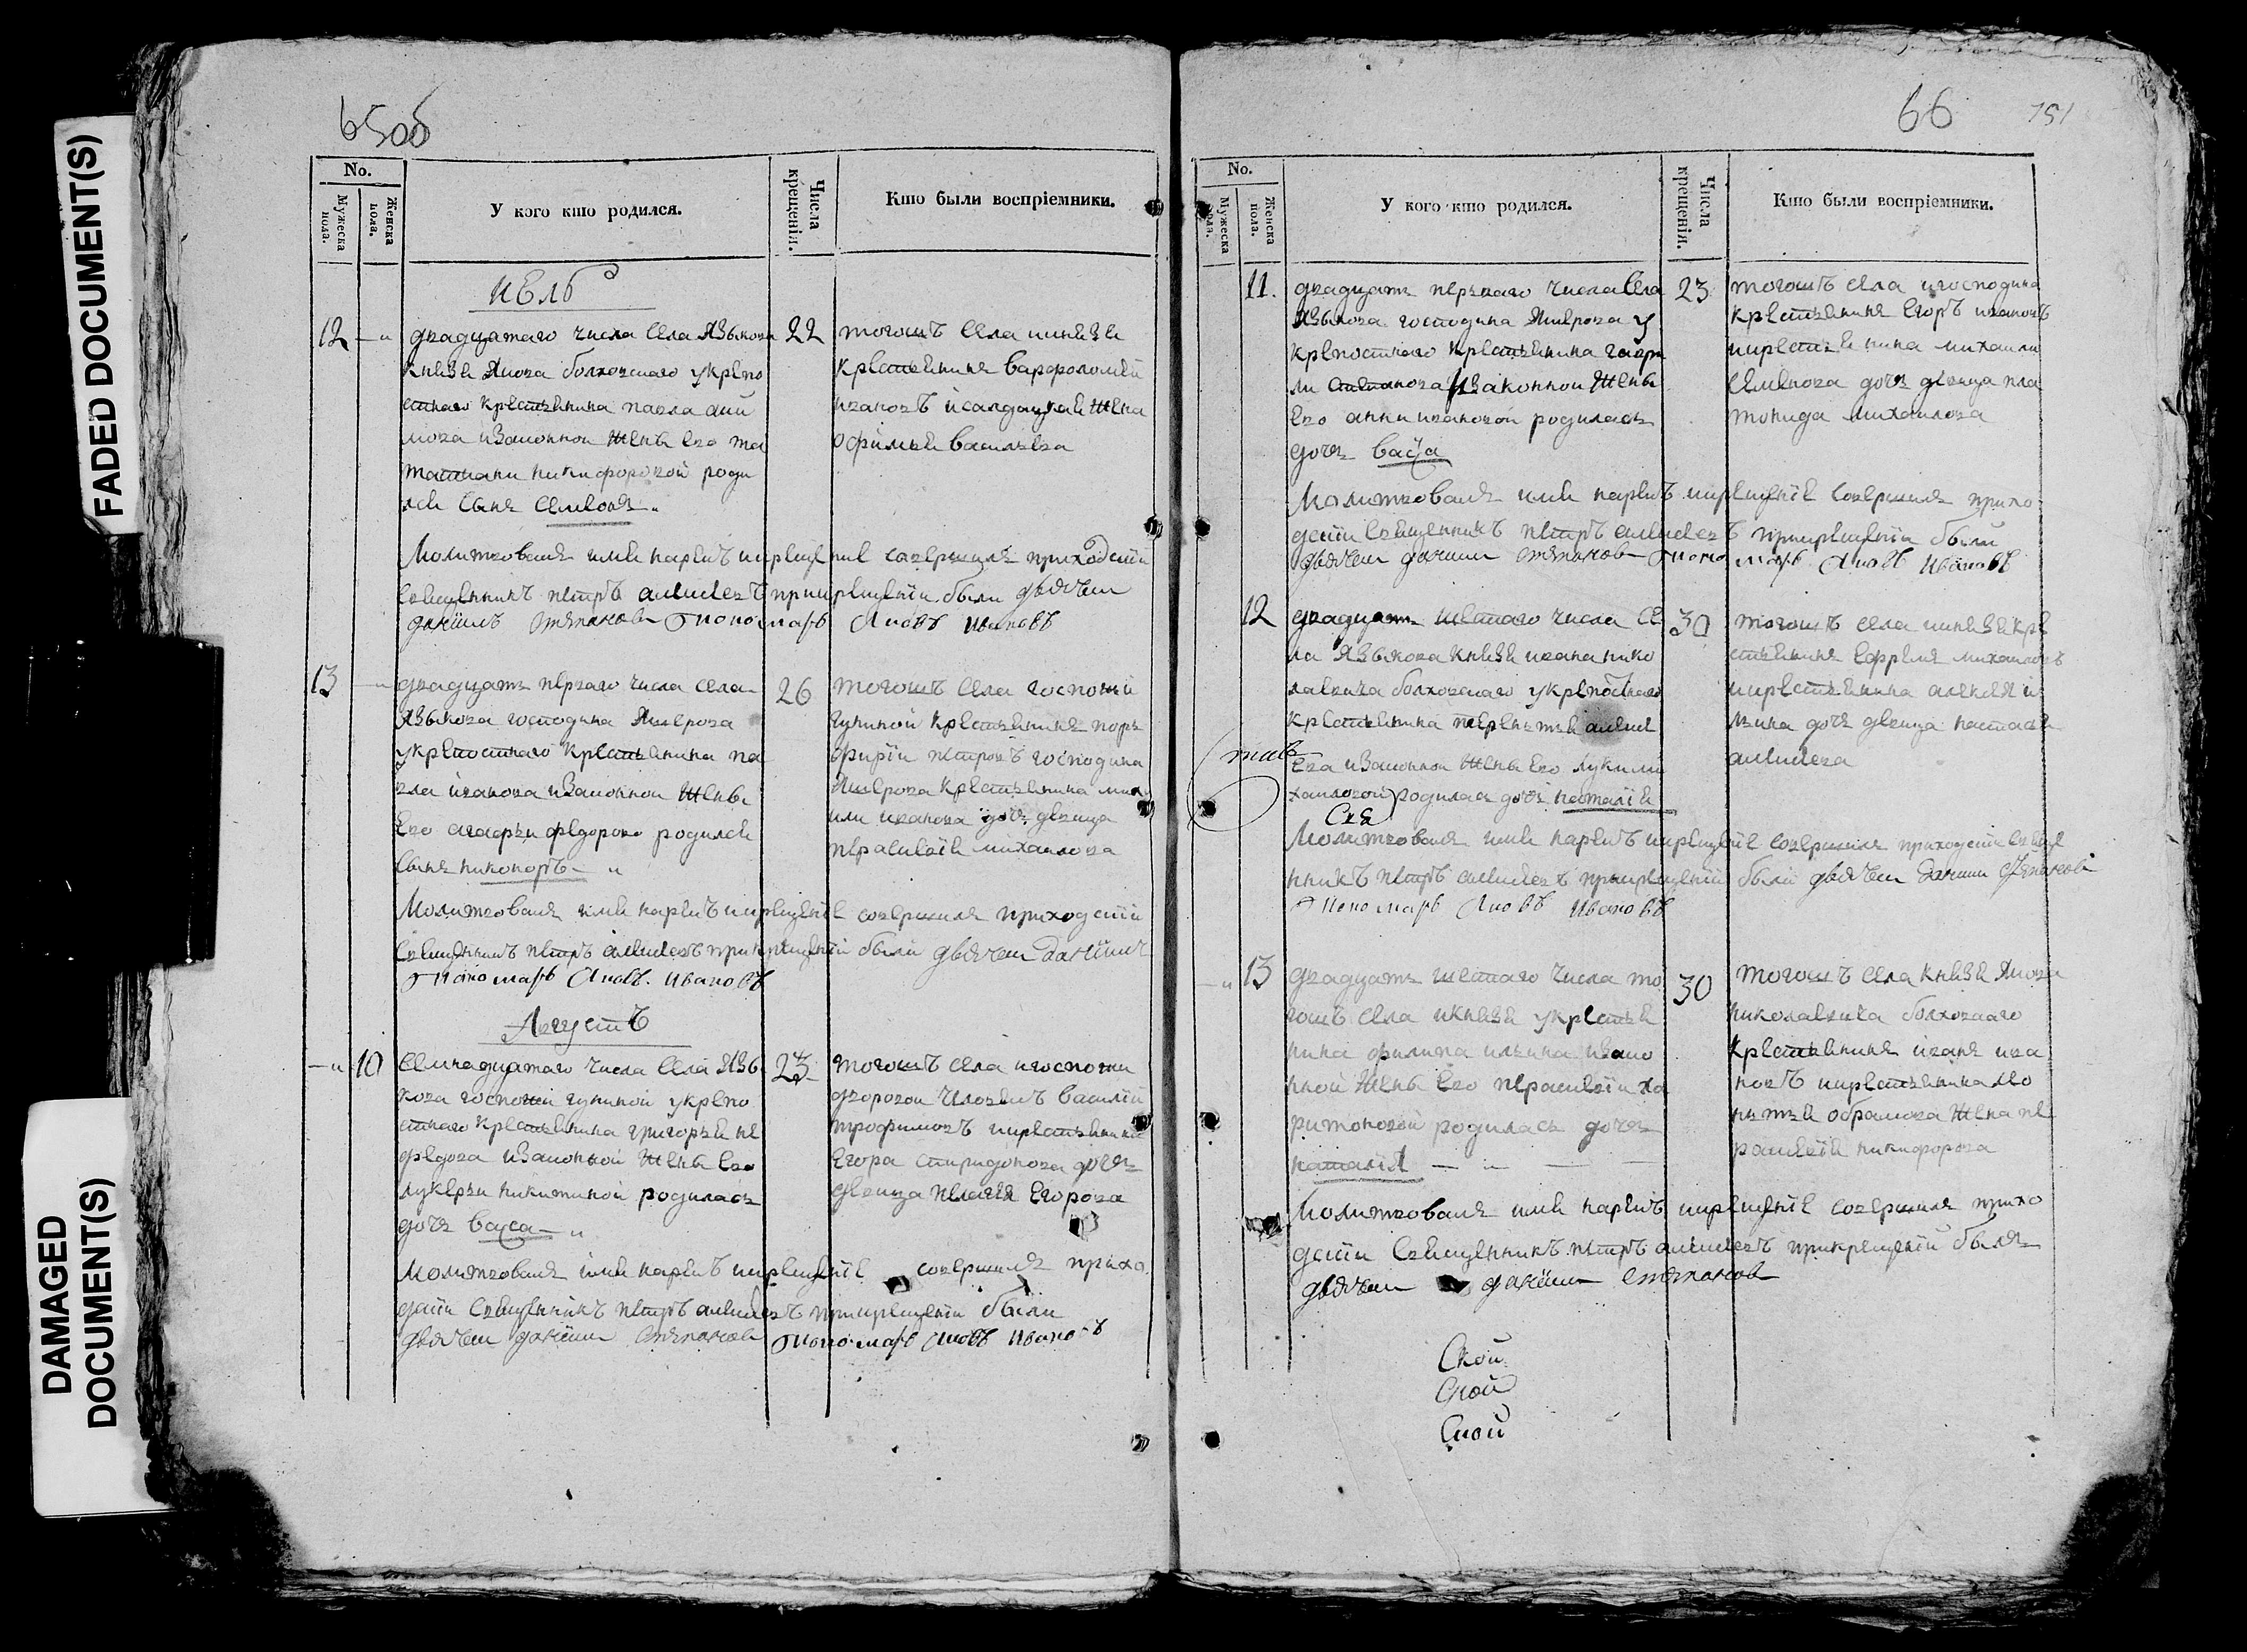 FADED DOCUMENT(S)
DAMAGED
DOCUMENT(S)
65об
No.
Мужеска пола.
Женска пола.
У кого кто родился.
Числа крещенія.
Кто были воспріемники.
июль
12
двадцатаго числа села Языкова
князя Якова болховскаго у крепо
стнаго крестьянина павла аки
мова и законной жены его та
татианы никифоровой роди
лся сынъ Симеонъ
22
тогожъ села и князя
крестьянинъ варфоломей
ивановъ и салдацкая жена
офимья васильева
Молитвовалъ имя нарекъ и крещение совершилъ приходский
священникъ петръ алексеевъ при крещении были дьячекъ
даниилъ Степановъ Пономарь Яковъ Ивановъ
13
двадцать перваго числа села
Языкова господина
у крепостнаго крестьянина па
вла иванова и законной жены
его агафьи федоровой родился
сынъ никоноръ
26
тогожъ села госпожи
гуниной крестьянинъ пор
фирий петровъ господина
крестьянина миха
или иванова дочь девица
параскевия михаилова
Молитвовалъ имя нарекъ и крещение совершилъ приходский
священникъ петръ алексеевъ при крещении были дьячекъ Даниилъ
Пономарь Яковъ Ивановъ
Августъ
10
Семнадцатаго числа села Язы
кова госпожи гуниной у крепо
стнаго крестьянина григорья не
федова и законной жены его
лукерьи никитиной родилась
дочь васса
23
тогожъ села и госпожи
дворовой человекъ василий
трофимовъ и крестьянина
Егора спиридонова дочь
девица пелагия Егорова
Молитвовалъ имя нарекъ и крещение совершилъ прихо
дский священникъ петръ алексеевъ при крещении были
дьячекъ даниилъ Степановъ Пономарь Яковъ Ивановъ
66
151
No.
Мужеска пола.
Женска пола.
У кого кто родился.
Числа крещенія.
Кто были воспріемники.
11.
двадцать перваго числа села
Языкова господина у
крепостнаго крестьянина гаври
ли и законной жены
его анны ивановой родилась
дочь васса
23
тогожъ села и господина
крестьянинъ Егоръ ивановъ
и крестьянина михаила
семенова дочь девица пла
тонида михаилова
Молитвовалъ имя нарекъ и крещение совершилъ прихо
дский священникъ петръ алексеевъ при крещении были
дьячекъ даниилъ степановъ Пономарь Яковъ Ивановъ
12
двадцать шестаго числа се
ла Языкова князя ивана нико
лаевича болховскаго у крепостнаго
крестьянина терентья алексе
ева и законной жены его лукии ми
хаиловой родилась дочь наталия
30
тогожъ села и князя кре
стьянинъ ефремъ михаиловъ
и крестьянина алексея и
льина дочь девица настасья
алексеева
Молитвовалъ имя нарекъ и крещение совершилъ приходский свяще
нникъ петръ алексеевъ при крещении были дьячекъ Даниилъ Степановъ
Пономарь Яковъ Ивановъ
13
двадцать шестаго числа то
гожъ села и князя у крестья
нина филипа ильина и зако
нной жены его параскевии ха
ритоновой родилась дочь
наталия
30
тогожъ села князя Якова
николаевича болховскаго
крестьянинъ иванъ ива
новъ и крестьянина ле
онтья абрамова жена па
раскевия никифорова
Молитвовалъ имя нарекъ и крещение совершилъ прихо
дский священникъ петръ алексеевъ при крещении былъ
дьячекъ даниилъ степановъ
Скои
Скои
Скои